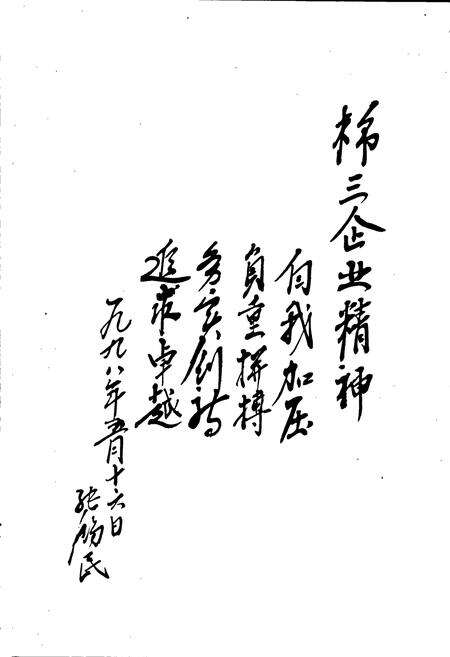 棉三企业精神
自我加压
负重拼搏
务实创新
追求卓越
一九九八年五月十六日
张 民